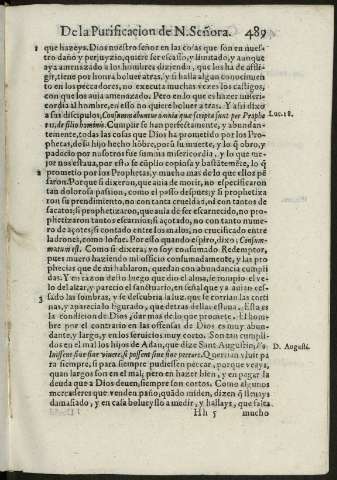 De la Purificacion de N. Señora. 489
que hazeys. Dios nuestro señor en las cosas que son en nues-
tro daño y perjuyzio, quiere ser escaso, y limitado, y aunque
aya amenazado a los hombres diziendo, que los ha de afli-
gir, tiene por honra boluer atras, y si halla algun conocimien
to en los peccadores, no executa muchas vezes los castigos,
con que los auia amenazado. Pero en lo que es hazer miseri-
cordia al hombre, en esso no quiere boluer a tras. Y assi dixo
a sus discipulos, Consummabuntur omnia quæ scripta sunt per Prophe
tas, de filio hominis. Cumplir se han perfectamente, y abundan-
temente, todas las cosas que Dios ha prometido por los Pro-
phetas, de su hijo hecho hōbre, por su muerte, y lo q̃ obro, y
padecio por nosotros fue summa misericordia. y lo que me-
jor nos estaua, por esto se cūplio copiosa y bastātemēte, lo q̃
prometio por los Prophetas, y mucho mas de lo que ellos pē
saron. Porque si dixeron, que auia de morir, no especificaron
tan dolorosa passion, como el passo despues; y si prophetiza
ron su prendimiento, no con tanta crueldad, ni con tantos de
sacatos; si prophetizaron, que auia de ser escarnecido, no pro-
phetizaron tantos escarnios; si açotado, no con tanto nume-
ro de açotes; si contado entre los malos, no crucificado entre
ladrones, como lo fue. Por esso quando espiro, dixo, Consum-
matum est. Como si dixera; yo soy consumado Redemptor,
pues muero haziendo mi officio consumadamente, y las pro
phecias que de mi hablaron, quedan con abundancia cumpli
das. Y en razon desto luego que dio el alma, se rompio el ve
lo del altar, y parecio el sanctuario, en señal que ya auian ces-
sado las sombras, y se descubria la luz. que se corrian las corti
nas, y aparecia lo figurado, que detras dellas estaua. Esta es
la condicion de Dios, dar mas de lo que promete. El hom-
bre por el contrario en las offensas de Dios es muy abun-
dante, y largo, y en los seruicios muy corto. Son tan cumpli-
dos en el mal los hijos de Adan, que dize Sant Augustin, Vo
luissent sine fine viuere, si possent sine fine peccare. Querrian viuir pa
ra siempre, si para siempre pudiessen peccar, porque veays,
quan largos son en el mal; pero en hazer bien, y en pagar la
deuda que a Dios deuen, siempre son cortos. Como algunos
mercaderes que venden paño, quādo miden, dizen q̃ lleuays
damasiado, y en casa bolueyslo a medir, y hallays, que falta
Hh 5 mucho
Luc. 18.
D. Augusti.